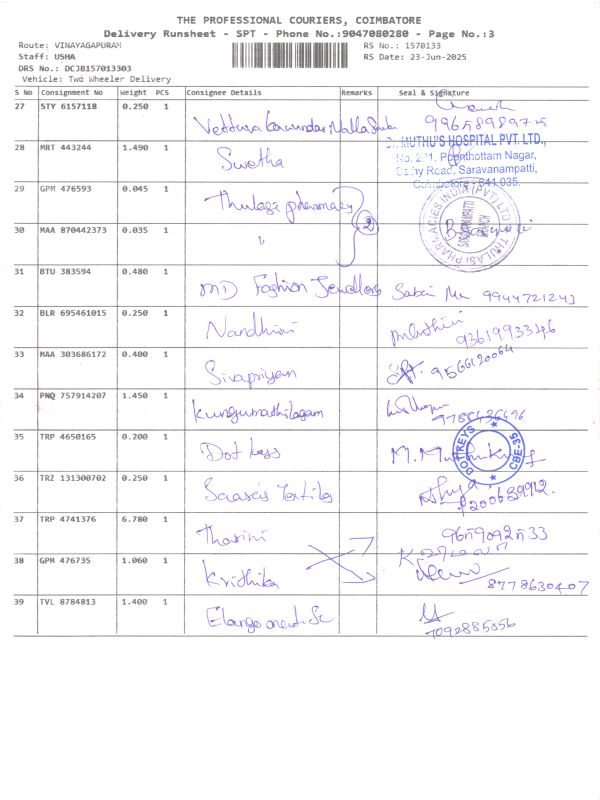 THE PROFESSIONAL COURIERS, COIMBATORE
Delivery Runsheet - SPT - Phone No.:9047080280 - Page No.:3
Route: VINAYAGAPURAM RS No.: 1570133
Staff: USHA RS Date: 23-Jun-2025
DRS No.: DCJB157013303
Vehicle: Two Wheeler Delivery
S No Consignment No Weight PCS Consignee Details Remarks Seal & Signature
27 STY 6157118 0.250 1
9965898975
28 MRT 443244 1.490 1 Swetha
Dr. MUTHU'S HOSPITAL PVT. LTD.,
Poonthottam Nagar,
Road, Saravanampatti,
Coimbatore - 641 035.
29 GPM 476593 0.045 1 Thulasi pharmacy 2
THULASI PHARMACIES INDIA (PVT) LTD
SARAVANAMPATTI BRANCH
30 MAA 870442373 0.035 1 "
31 BTU 383594 0.480 1 MD Fashion Jewellers 9944721243
32 BLR 695461015 0.250 1 Nandhini
9361993346
33 MAA 303686172 0.400 1 Sivapriyan 9566120064
34 PNQ 757914207 1.450 1 Kungumathilagam
9788436696
35 TRP 4650165 0.200 1 Dot Keys
DOT KEYS CBE-35
36 TRZ 131300702 0.250 1
37 TRP 4741376 6.780 1 Tharini 9659092533
38 GPM 476735 1.060 1 Kridhika
8778630407
39 TVL 8784813 1.400 1
7092885556